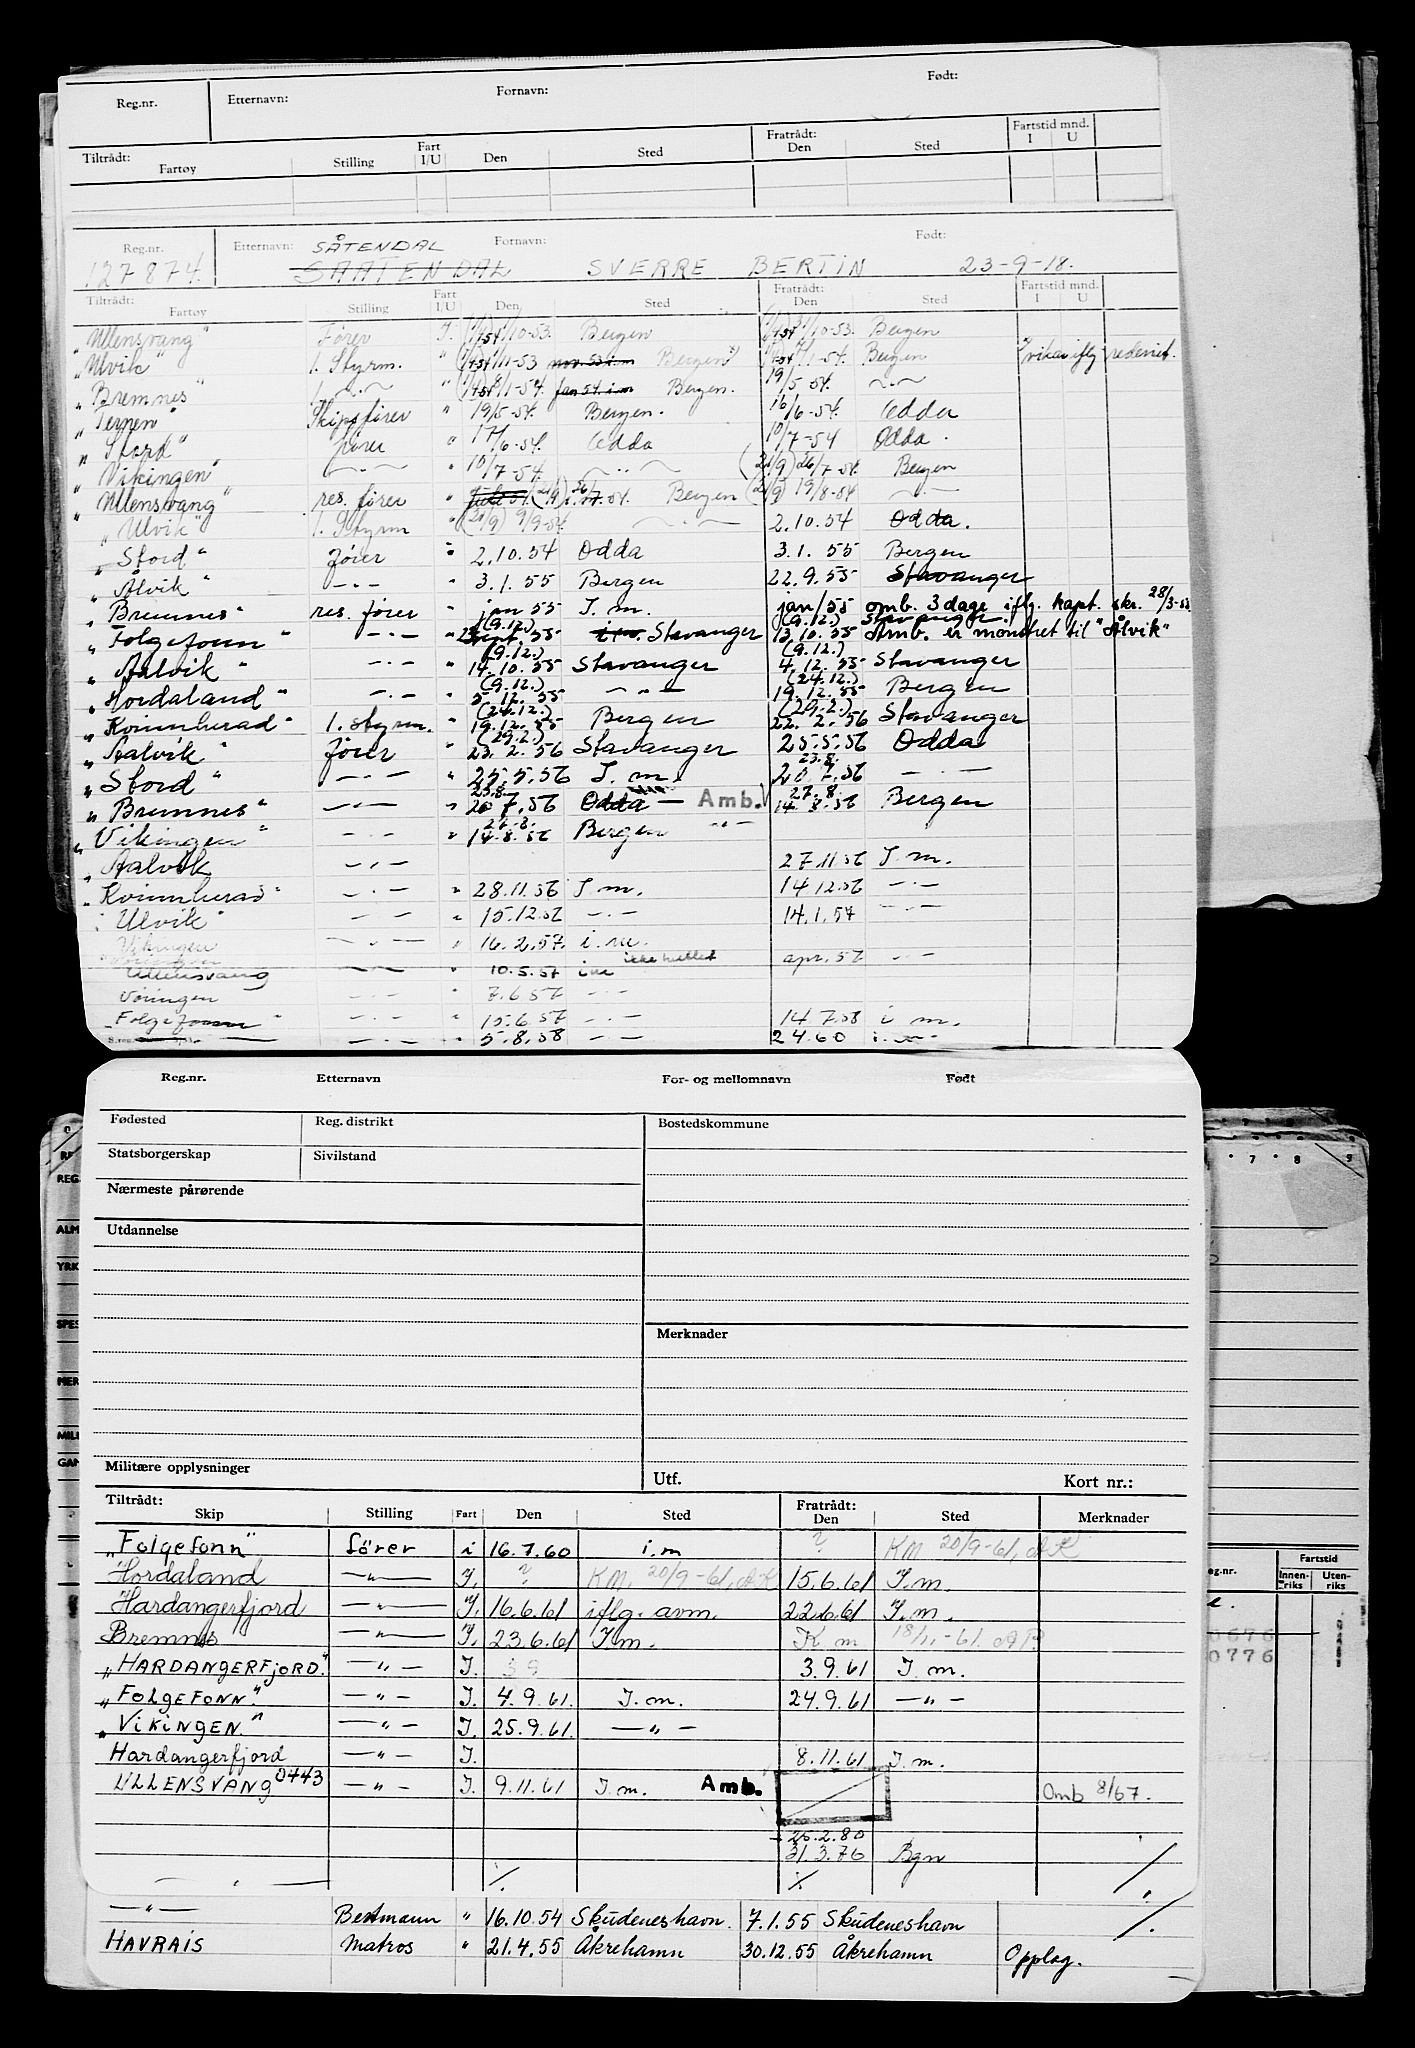 Reg.nr. Etternavn: Fornavn: Født:
Tiltrådt: Fartøy Stilling Fart I/U Den Sted Fratrådt: Den Sted Fartstid mnd. I U
Reg.nr. Etternavn: SÅTENDAL Fornavn: Født:
127874. SAATENDAL SVERRE BERTIN 23-9-18.
Tiltrådt: Fartøy Stilling Fart I/U Den Sted Fratrådt: Den Sted Fartstid mnd. I U
"Ullensvang" Fører I. 10-53. Bergen 10-53. Bergen
"Ulvik" 1. Styrm. " 11-53 nov. 53 i.m Bergen 1-54. Bergen
"Bremnes" 1. -"- " 1-54. jan 54 i.m Bergen. 19/5-54. -"-
"Ternen" Skipsfører " 19/5-54. Bergen. 16/6-54. Odda
"Stord" fører " 17/6-54. Odda 10/7-54 Odda.
"Vikingen" -"- " 10/7-54. -"- (21/9) 26/7-54. Bergen
"Ullensvang" res. fører " juli 54 (21/9) 26/7.54. Bergen (21/9) 19/8-54 -"-
"Ulvik" 1. Styrm " (21/9) 9/9-54. -"- 2.10.54 Odda.
"Stord" fører " 2.10.54 Odda 3.1.55 Bergen
"Ålvik" -"- " 3.1.55 Bergen 22.9.55 Stavanger
"Bremnes" res. fører " jan 55 I.m. jan/55 omb. 3 dage iflg. kapt. skr. 28/3-55
"Folgefonn" -"- " (9.12.) 23 sept. 55 i.m. Stavanger (9.12.) 13.10.55 Stavanger. Amb. er mønstret til "Ålvik"
"Aalvik" -"- " (9.12.) 14.10.55 Stavanger (9.12.) 4.12.55 Stavanger
"Hordaland" -"- " (9.12.) 5.12.55 -"- (24.12.) 19.12.55 Bergen
"Kvinnherad" 1. styrm. " (24.12.) 19.12.55 Bergen (29.2.) 22.2.56 Stavanger
"Aalvik" fører " (29.2.) 23.2.56 Stavanger 25.5.56 Odda
"Stord" -"- " 25.5.56 I.m. 23.8. 20.7.56 -"-
"Bremnes" -"- " 23.8. 20.7.56 Odda - Amb. 27.8. 14.8.56 Bergen
"Vikingen" -"- " 27.8. 14.8.56 Bergen -"-
"Aalvik -"- 27.11.56 I.m.
"Kvinnherad" -"- " 28.11.56 I.m. 14.12.56 -"-
"Ulvik" -"- " 15.12.56 -"- 14.1.57 -"-
Vikingen -"- " 16.2.57. i.m. apr. 57 -"-
Ullensvang -"- " 10.5.57 i.m ikke huttet
Vøringen -"- " 7.6.57 -"-
"Folgefonn" -"- " 15.6.57 -"- 14.7.58 i m.
-"- " 5.8.58 -"- 2.4.60 i.m
Reg.nr. Etternavn For- og mellomnavn Født
Fødested Reg. distrikt Bostedskommune
Statsborgerskap Sivilstand
Nærmeste pårørende
Utdannelse
Merknader
Militære opplysninger Utf. Kort nr.:
Tiltrådt: Skip Stilling Fart Den Sted Fratrådt: Den Sted Merknader
"Folgefonn" fører i 16.7.60 i.m ? KM 20/9-61, AK
Hordaland -"- I. ? KM. 20/9-61, AK 15.6.61 I.m.
Hardangerfjord -"- I. 16.6.61 iflg. avm. 22.6.61 I.m.
Bremnes -"- I. 23.6.61 I.m. K m
"HARDANGERFJORD." -"- I. 3 9 3.9.61 I.m.
"FOLGEFONN." -"- I. 4.9.61. I.m. 24.9.61 -"-
"VIKINGEN." -"- I. 25.9.61. -"-
Hardangerfjord -"- I. 8.11.61 I.m.
ULLENSVANG 0443 -"- I. 9.11.61 I.m. Amb. Omb 8/67.
25.2.80
31.3.76 Bgn
-"- Bestmann " 16.10.54 Skudeneshavn. 7.1.55 Skudeneshavn
HAVRAIS Matros " 21.4.55 Åkrehamn 30.12.55 Åkrehamn Opplag.
REG
ALM
YRK
SPES
MER
MILI
GAN
7 8 9
eg.nr. Fartstid Innenriks Utenriks
0676
0776